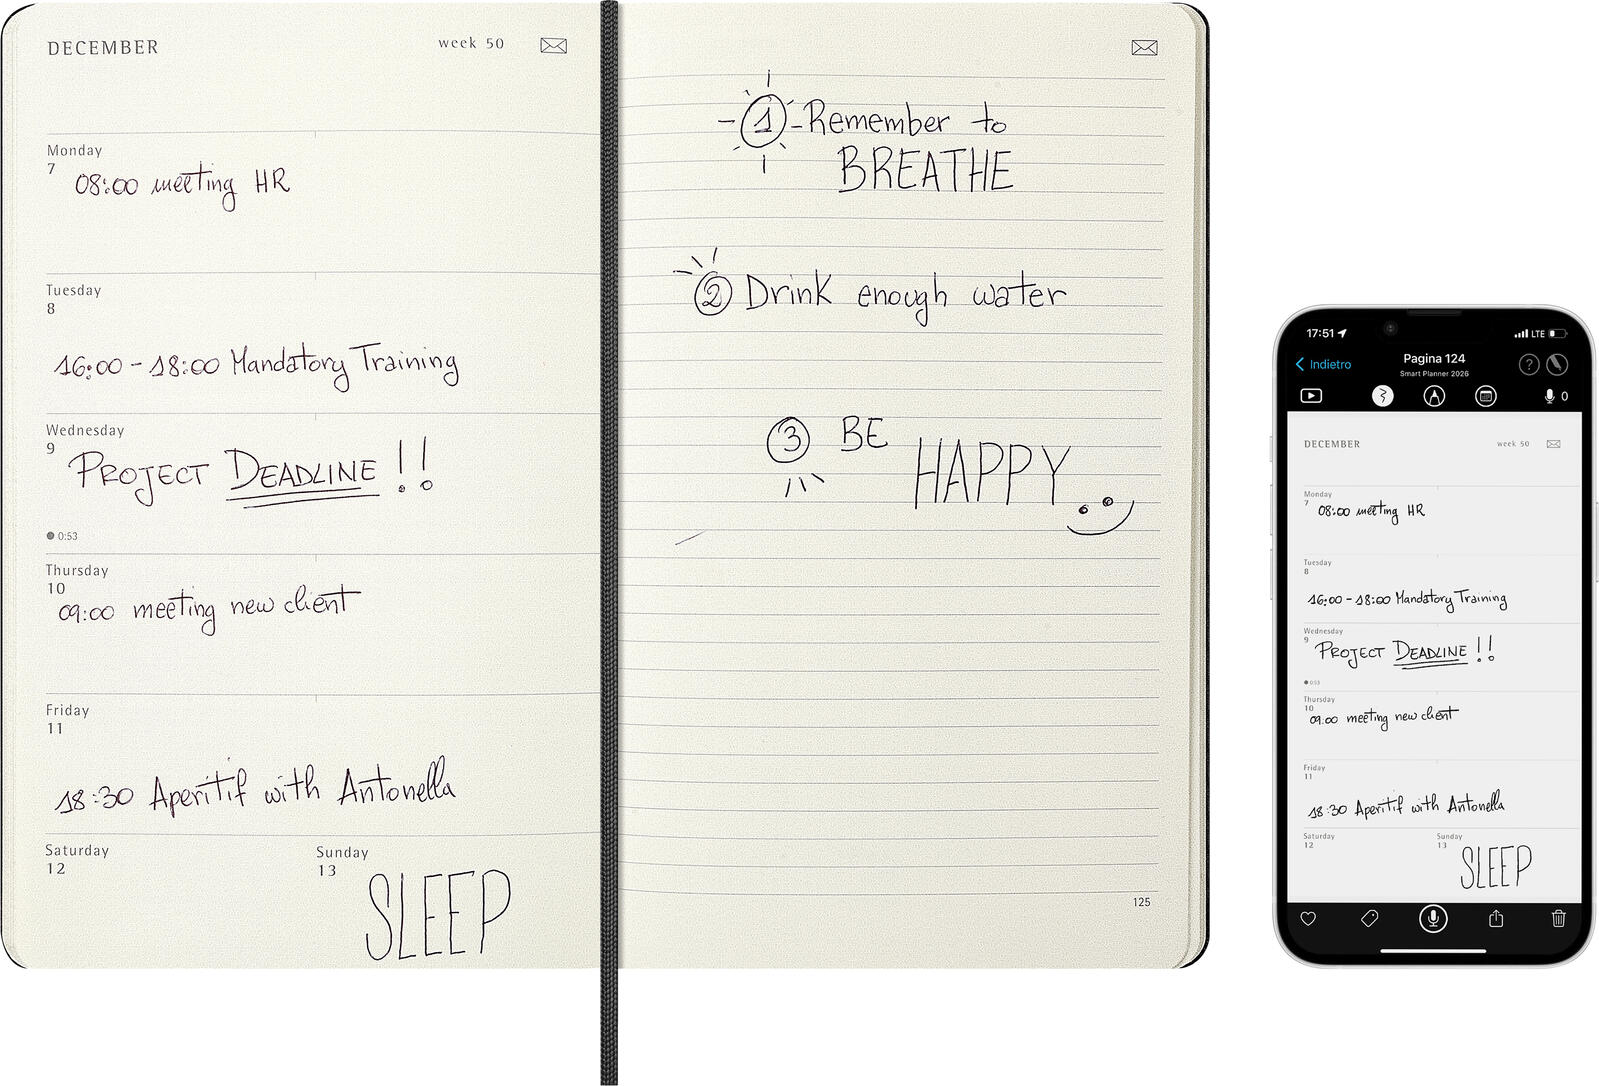 DECEMBER
week 50
Monday
7
08:00 meeting HR
Tuesday
8
16:00 - 18:00 Mandatory Training
Wednesday
9
PROJECT DEADLINE !!
0:53
Thursday
10
09:00 meeting new client
Friday
11
18:30 Aperitif with Antonella
Saturday
12
Sunday
13
SLEEP
1 - Remember to
BREATHE
2 Drink enough water
3 BE
HAPPY
125
17:51
LTE
Indietro
Pagina 124
Smart Planner 2026
?
0
DECEMBER
week 50
Monday
7
08:00 meeting HR
Tuesday
8
16:00 - 18:00 Mandatory Training
Wednesday
9
PROJECT DEADLINE !!
0:53
Thursday
10
09:00 meeting new client
Friday
11
18:30 Aperitif with Antonella
Saturday
12
Sunday
13
SLEEP